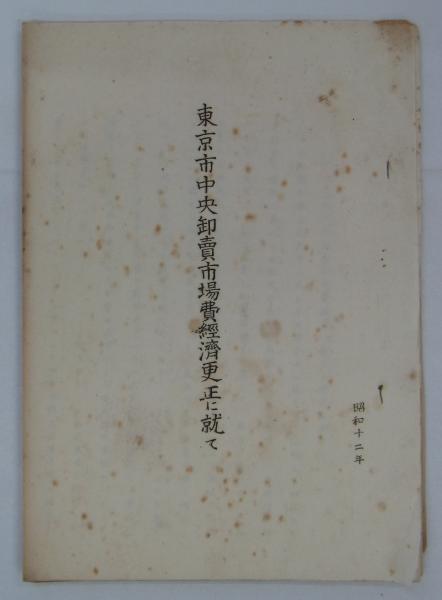 東京市中央卸賣市場費經濟更正に就て
昭和十二年